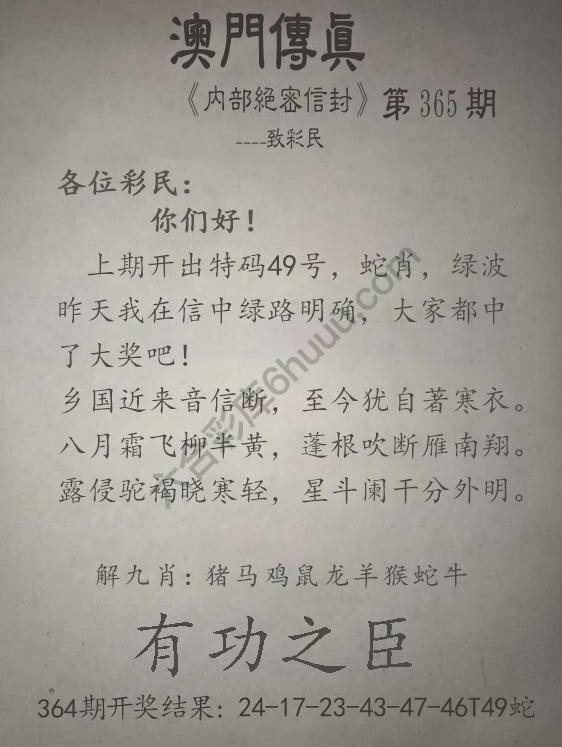 澳門傳眞
《内部絕密信封》第365期
----致彩民
各位彩民：
你们好！
上期开出特码49号，蛇肖，绿波
昨天我在信中绿路明确，大家都中
了大奖吧！
乡国近来音信断，至今犹自著寒衣。
八月霜飞柳半黄，蓬根吹断雁南翔。
露侵驼褐晓寒轻，星斗阑干分外明。
六合彩库6huuu.com
解九肖：猪马鸡鼠龙羊猴蛇牛
有功之臣
364期开奖结果：24-17-23-43-47-46T49蛇